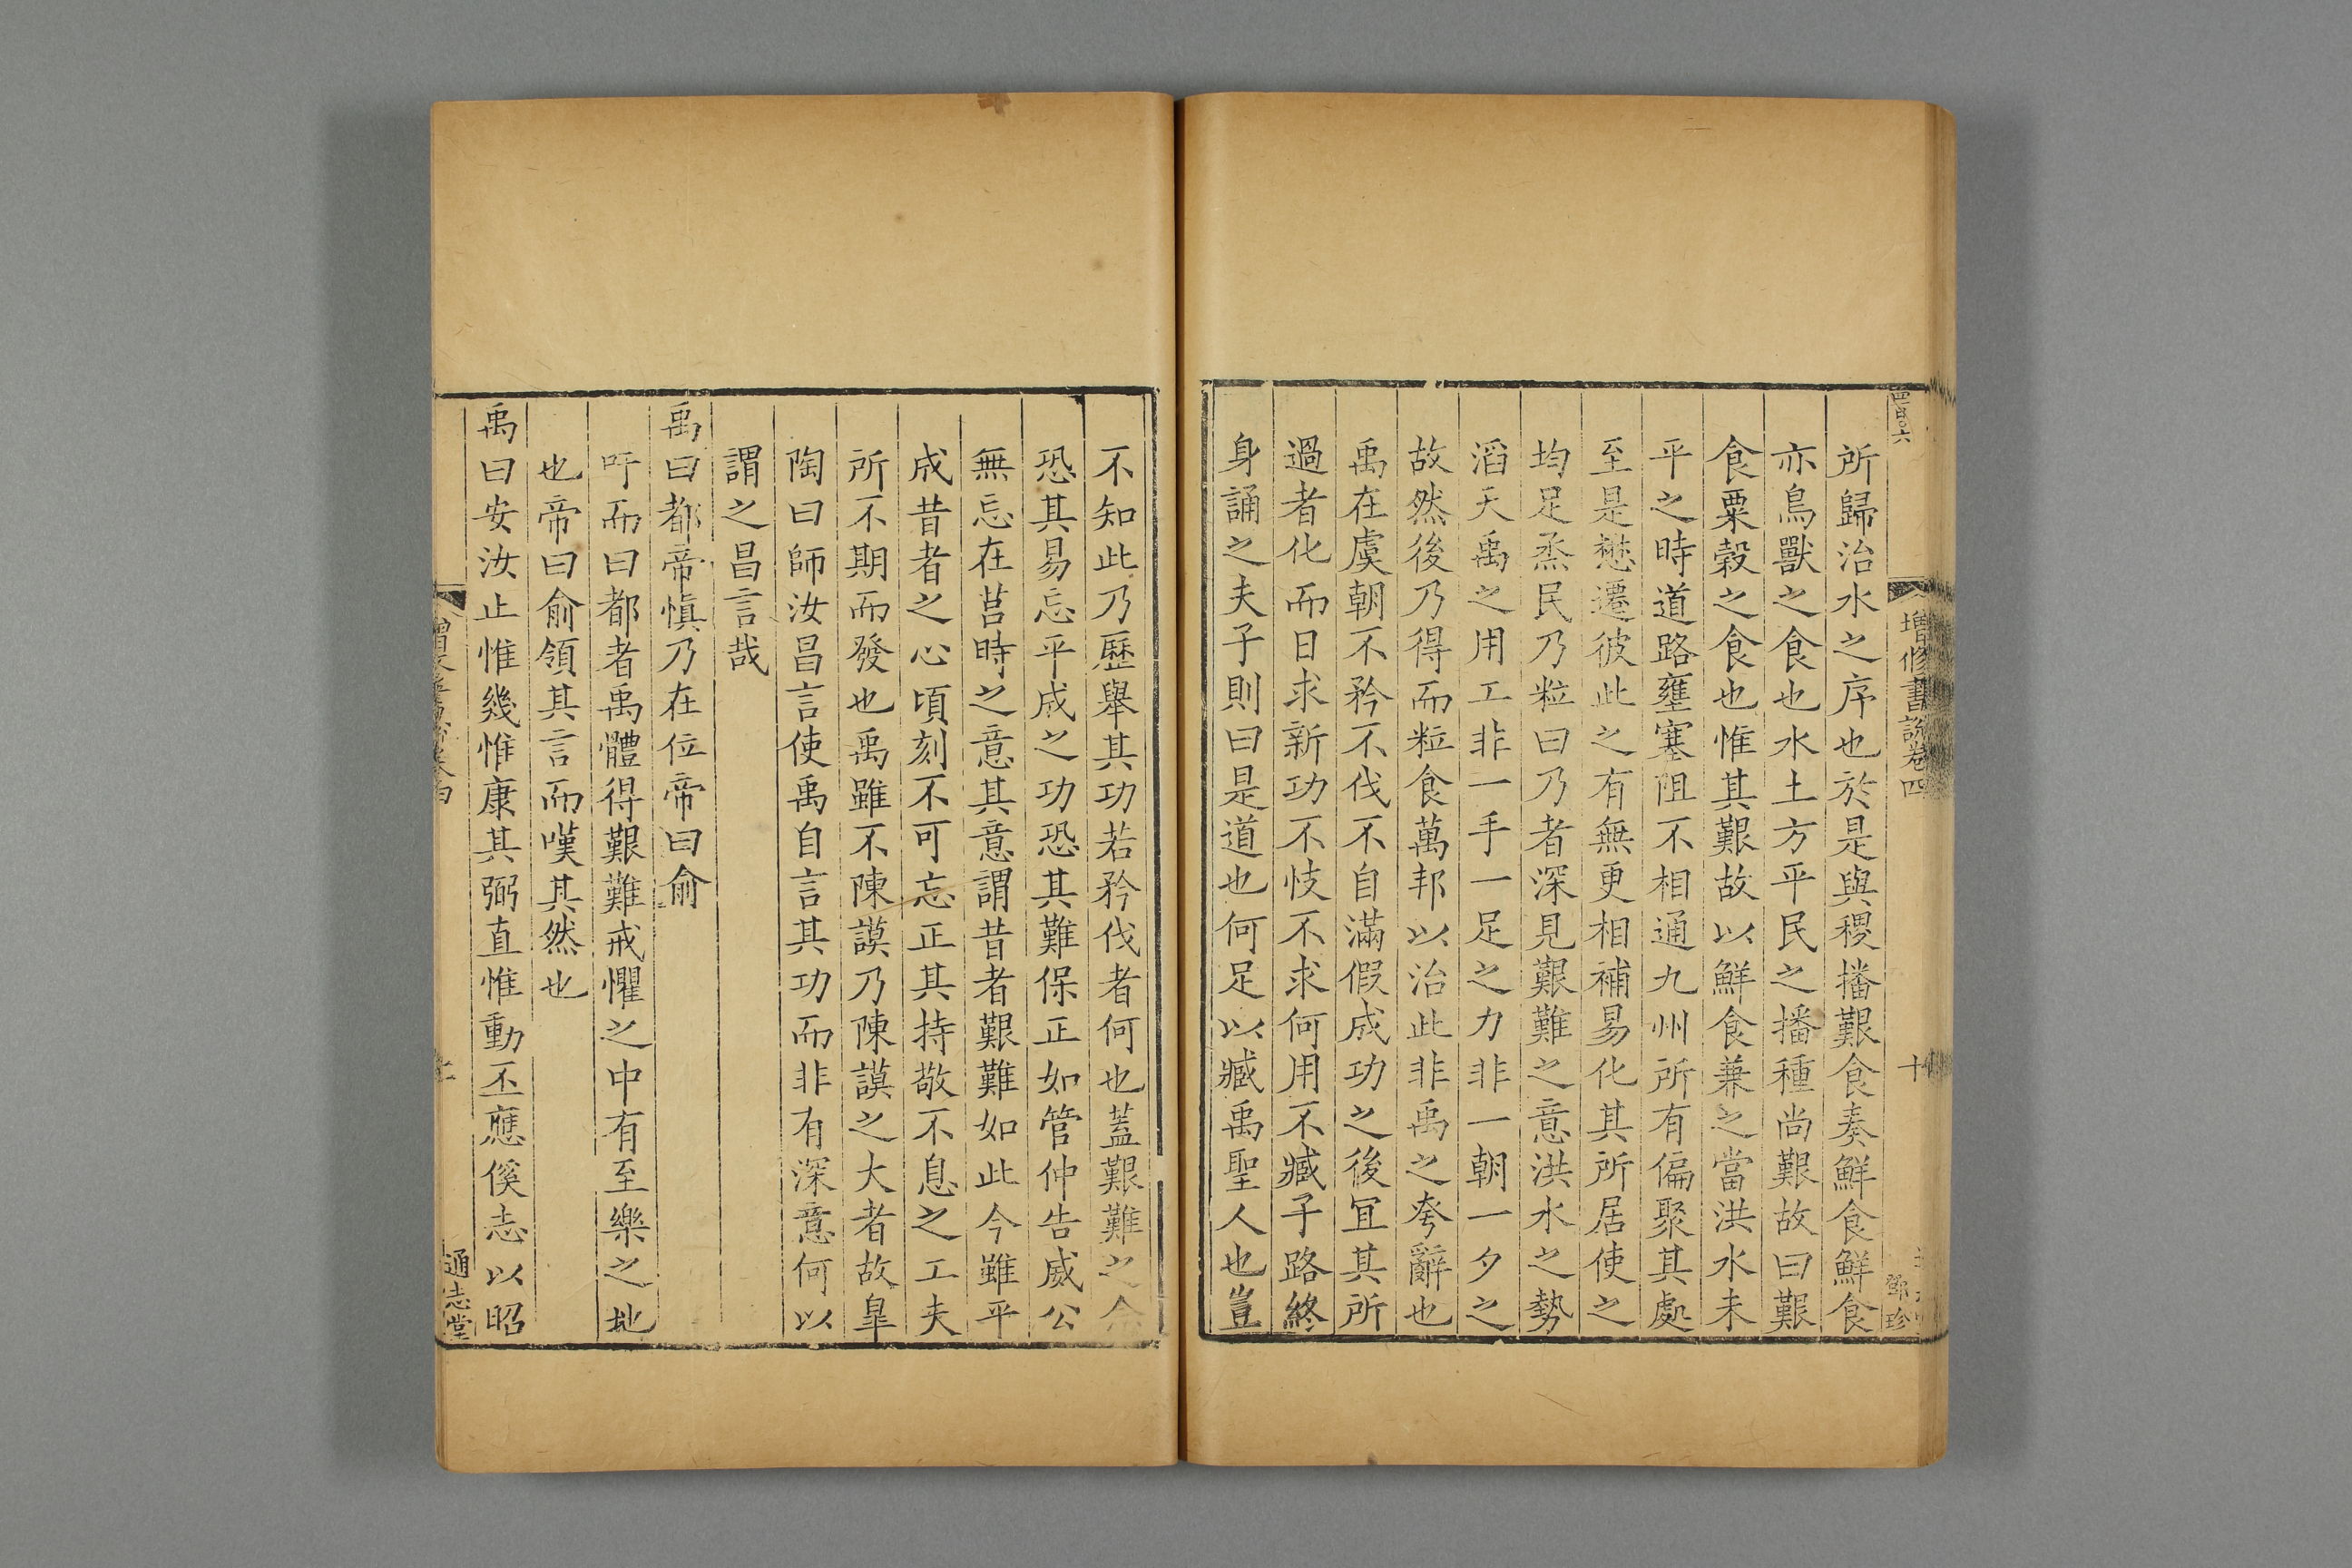 增修書說卷四
十
鄧珍
所歸治水之序也於是與稷播艱食奏鮮食鮮食
亦鳥獸之食也水土方平民之播種尚艱故曰艱
食粟穀之食也惟其艱故以鮮食兼之當洪水未
平之時道路壅塞阻不相通九州所有偏聚其處
至是懋遷彼此之有無更相補易化其所居使之
均足烝民乃粒曰乃者深見艱難之意洪水之勢
滔天禹之用工非一手一足之力非一朝一夕之
故然後乃得而粒食萬邦以治此非禹之夸辭也
禹在虞朝不矜不伐不自滿假成功之後冝其所
過者化而日求新功不忮不求何用不臧子路終
身誦之夫子則曰是道也何足以臧禹聖人也豈
不知此乃歷舉其功若矜伐者何也蓋艱難之念
恐其易忘平成之功恐其難保正如管仲告威公
無忘在莒時之意其意謂昔者艱難如此今雖平
成昔者之心頃刻不可忘正其持敬不息之工夫
所不期而發也禹雖不陳謨乃陳謨之大者故臯
陶曰師汝昌言使禹自言其功而非有深意何以
謂之昌言哉
禹曰都帝慎乃在位帝曰俞
吁而曰都者禹體得艱難戒懼之中有至樂之地
也帝曰俞領其言而嘆其然也
禹曰安汝止惟幾惟康其弼直惟動丕應徯志以昭
通志堂